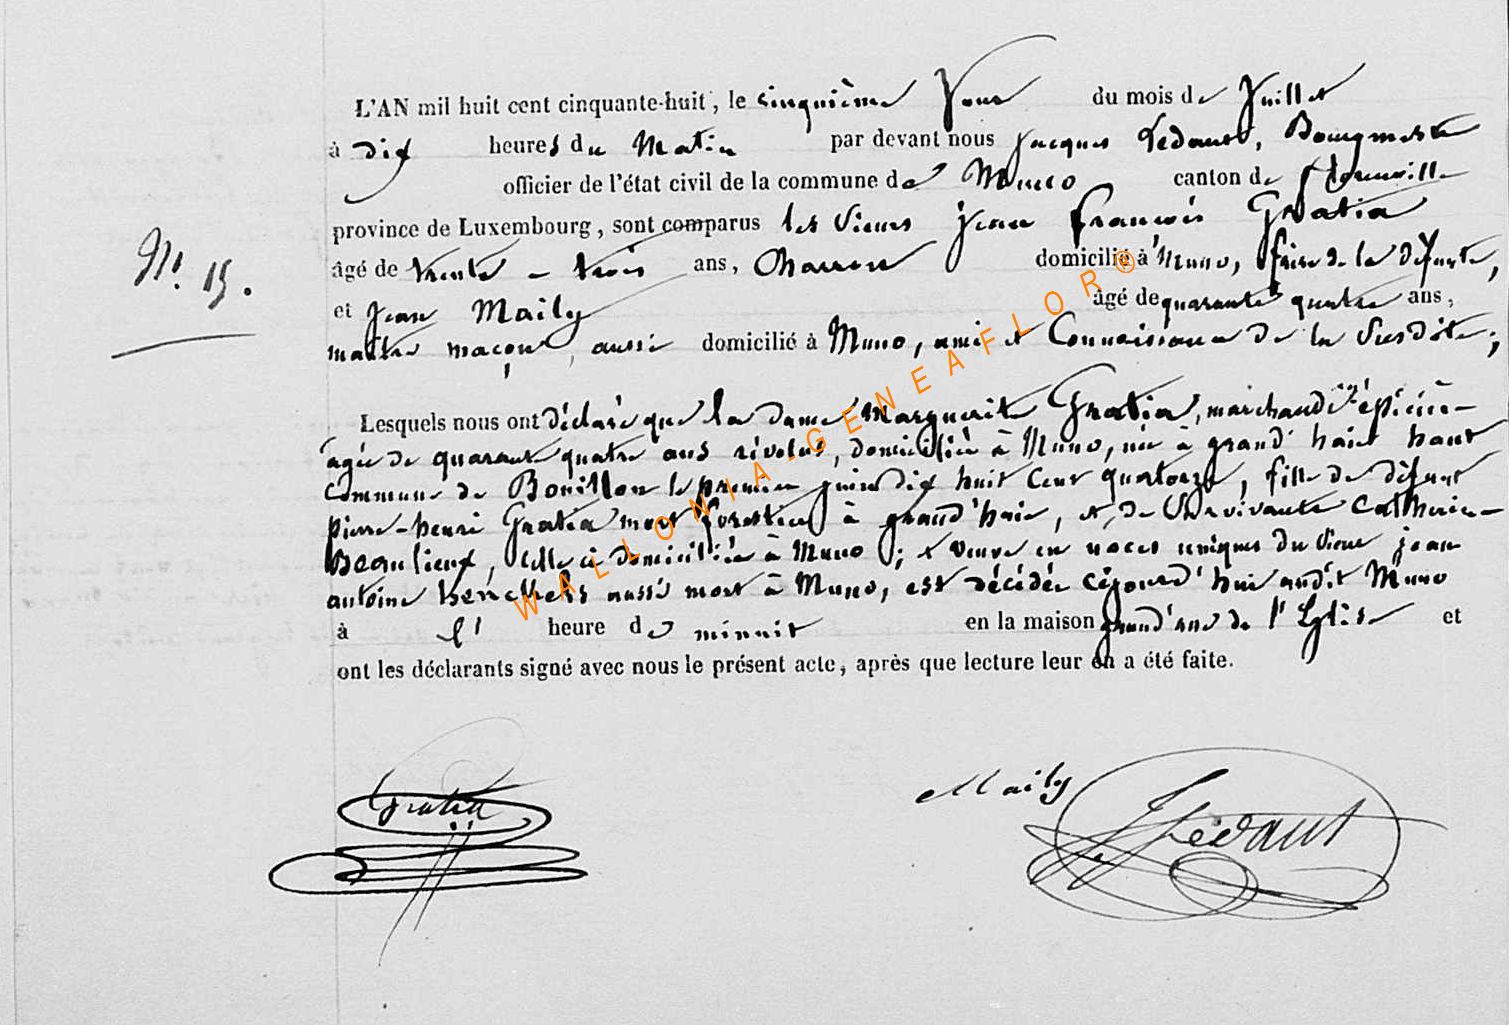 L'AN mil huit cent cinquante-huit, le cinquième Jour du mois de Juillet
à dix heures du Matin par devant nous Jacques Lédant, Bourgmestre
officier de l'état civil de la commune de Muno canton de florenville
province de Luxembourg, sont comparus les Sieurs Jean François Gratia
âgé de trente-trois ans, Charron domicilié à Muno, frère de la défunte,
N° 15.
et Jean Maily âgé de quarante quatre ans,
maître maçon, aussi domicilié à Muno, ami et Connaissance de la Susdite;
Lesquels nous ont déclaré que la dame Marguerite Gratia, marchande épicière
agée de quarante quatre ans révolus, domiciliée à Muno, née à grand' haie haut
Commune de Bouillon le premier juin dix huit Cent quatorze, fille de défunt
pierre-henri Gratia mort forestier à grand'haie, et de Survivante Catherine
Beaulieux, celle ci domiciliée à Muno; et veuve en noces uniques du Sieur jean
antoine aussi mort à Muno, est décédée cejourd'hui audit Muno
à l' heure de minuit en la maison grand'rue de l'Eglise et
ont les déclarants signé avec nous le présent acte, après que lecture leur en a été faite.
Gratia
Maily
JLédant
WALLONIA-GENEAFLOR®